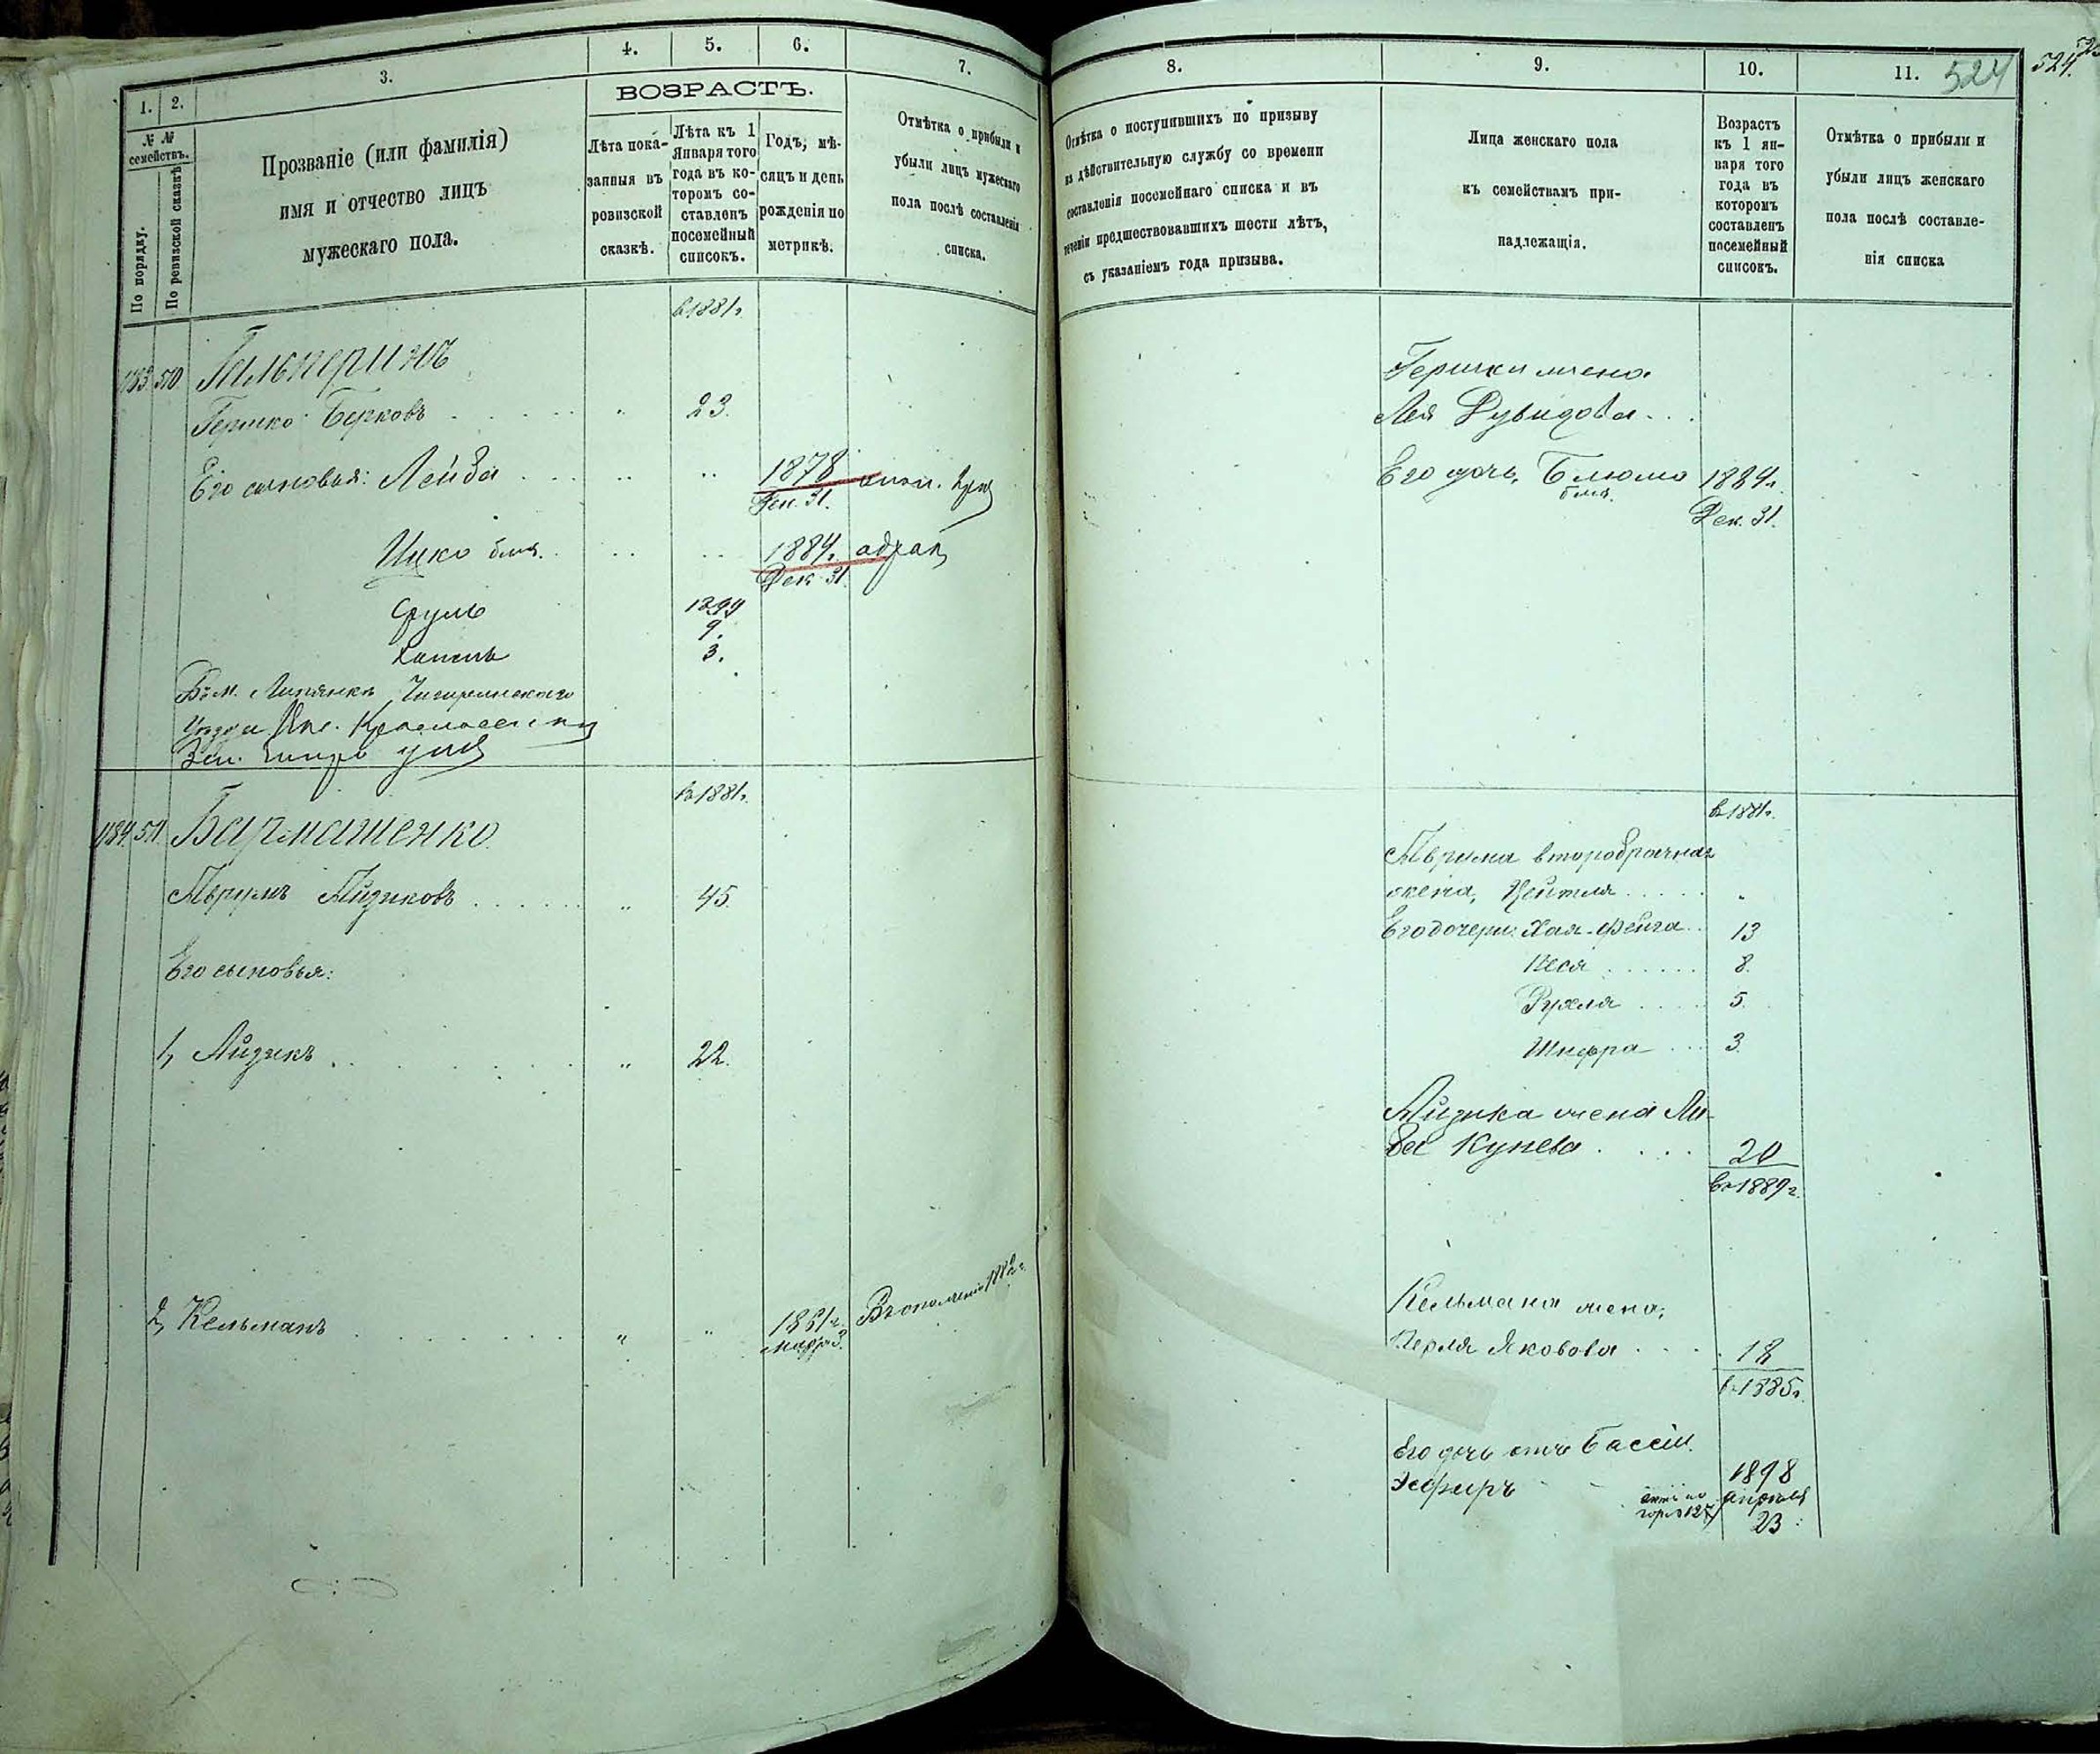 1. 2. 3. 4. 5. 6. 7.
№ №
семействъ.
По порядку.
По ревизской сказкѣ.
Прозваніе (или фамилія)
имя и отчество лицъ
мужескаго пола.
ВОЗРАСТЪ.
Лѣта пока-
занныя въ
ревизской
сказкѣ.
Лѣта къ 1
Января того
года въ ко-
торомъ со-
ставленъ
посемейный
списокъ.
Годъ, мѣ-
сяцъ и день
рожденія по
метрикѣ.
Отмѣтка о прибыли и
убыли лицъ мужескаго
пола послѣ составленія
списка.
в 1881 г.
1183. 510. Гальперинъ
Гершко Берковъ 23.
Его сыновья: Лейба 1878
Ген. 31.
Ицко 1884. 
Дек. 31.
Сруль 1899
9.
Хаимъ 3.
Чигиринскаго
в 1881 г.
1184. 511. Бармашенко.
Аврумъ Айзиковъ 45.
Его сыновья:
1, Айзикъ 22.
2, Кельманъ 1861 г.
марта 3. В ополченіе 1882 г.
8. 9. 10. 11. 524 524.
Отмѣтка о поступившихъ по призыву
на дѣйствительную службу со времени
составленія посемейнаго списка и въ
теченіи предшествовавшихъ шести лѣтъ,
съ указаніемъ года призыва.
Лица женскаго пола
къ семействамъ при-
надлежащія.
Возрастъ
къ 1 ян-
варя того
года въ
которомъ
составленъ
посемейный
списокъ.
Отмѣтка о прибыли и
убыли лицъ женскаго
пола послѣ составле-
нія списка
Гершки жена
Лея Дувидова
Его дочь, Блюма 1884 г.
Дек. 31.
в 1881 г.
Аврума второбрачная
жена, Цейтля
Его дочери: Хая-Фейга 13
Песя 8.
Рухля 5.
Шифра 3.
Айзика жена Ли-
ба Кунева 20
в 1889 г.
Кельмана жена,
Перля Яковова 18
в 1885 г.
Его дочь отъ Бассіи
Эсфирь 1898
апрѣля
23